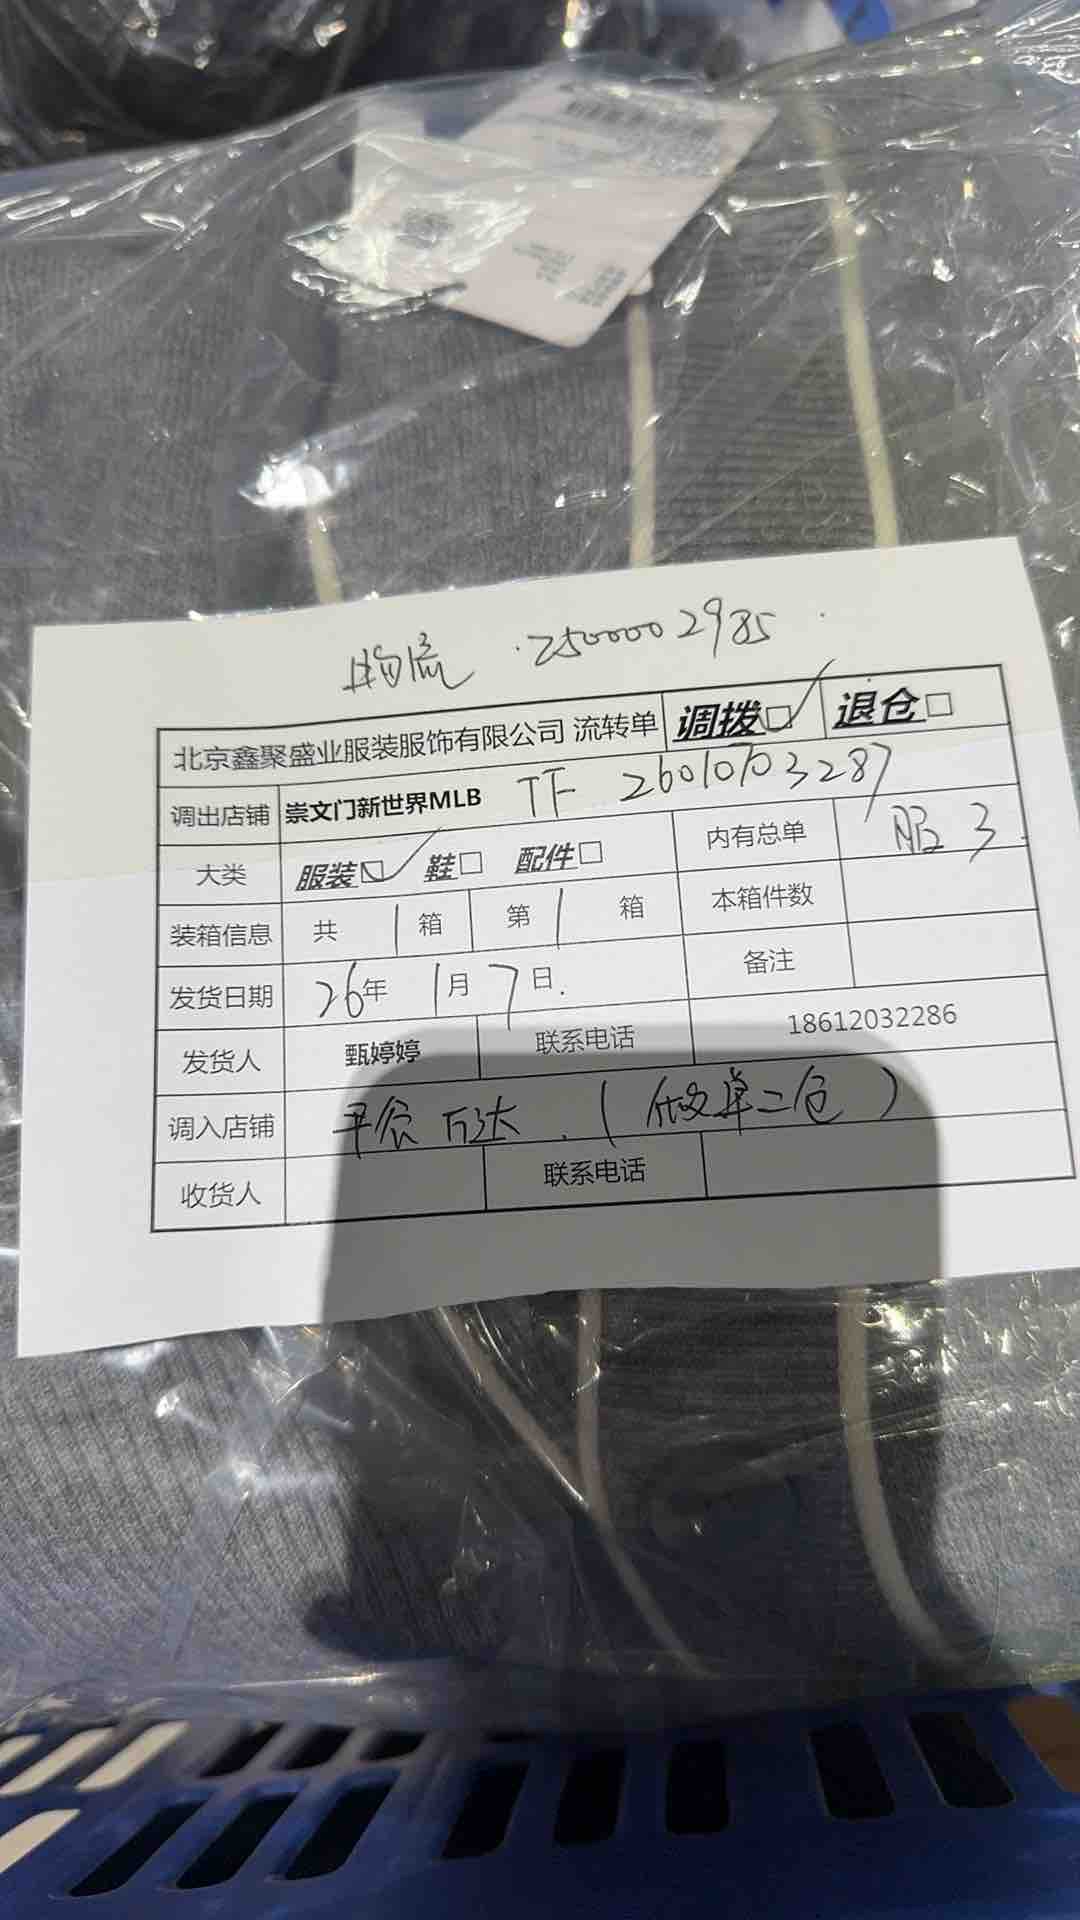 物流 . 2500002985
北京鑫聚盛业服装服饰有限公司 流转单 调拨☑ 退仓□
调出店铺 崇文门新世界MLB TF 26010703287
大类 服装☑ 鞋□ 配件□ 内有总单 服 3
装箱信息 共 1 箱 第 1 箱 本箱件数
发货日期 26年 1月 7日. 备注
发货人 甄婷婷 联系电话 18612032286
调入店铺 平谷万达.(做单二仓)
收货人 联系电话